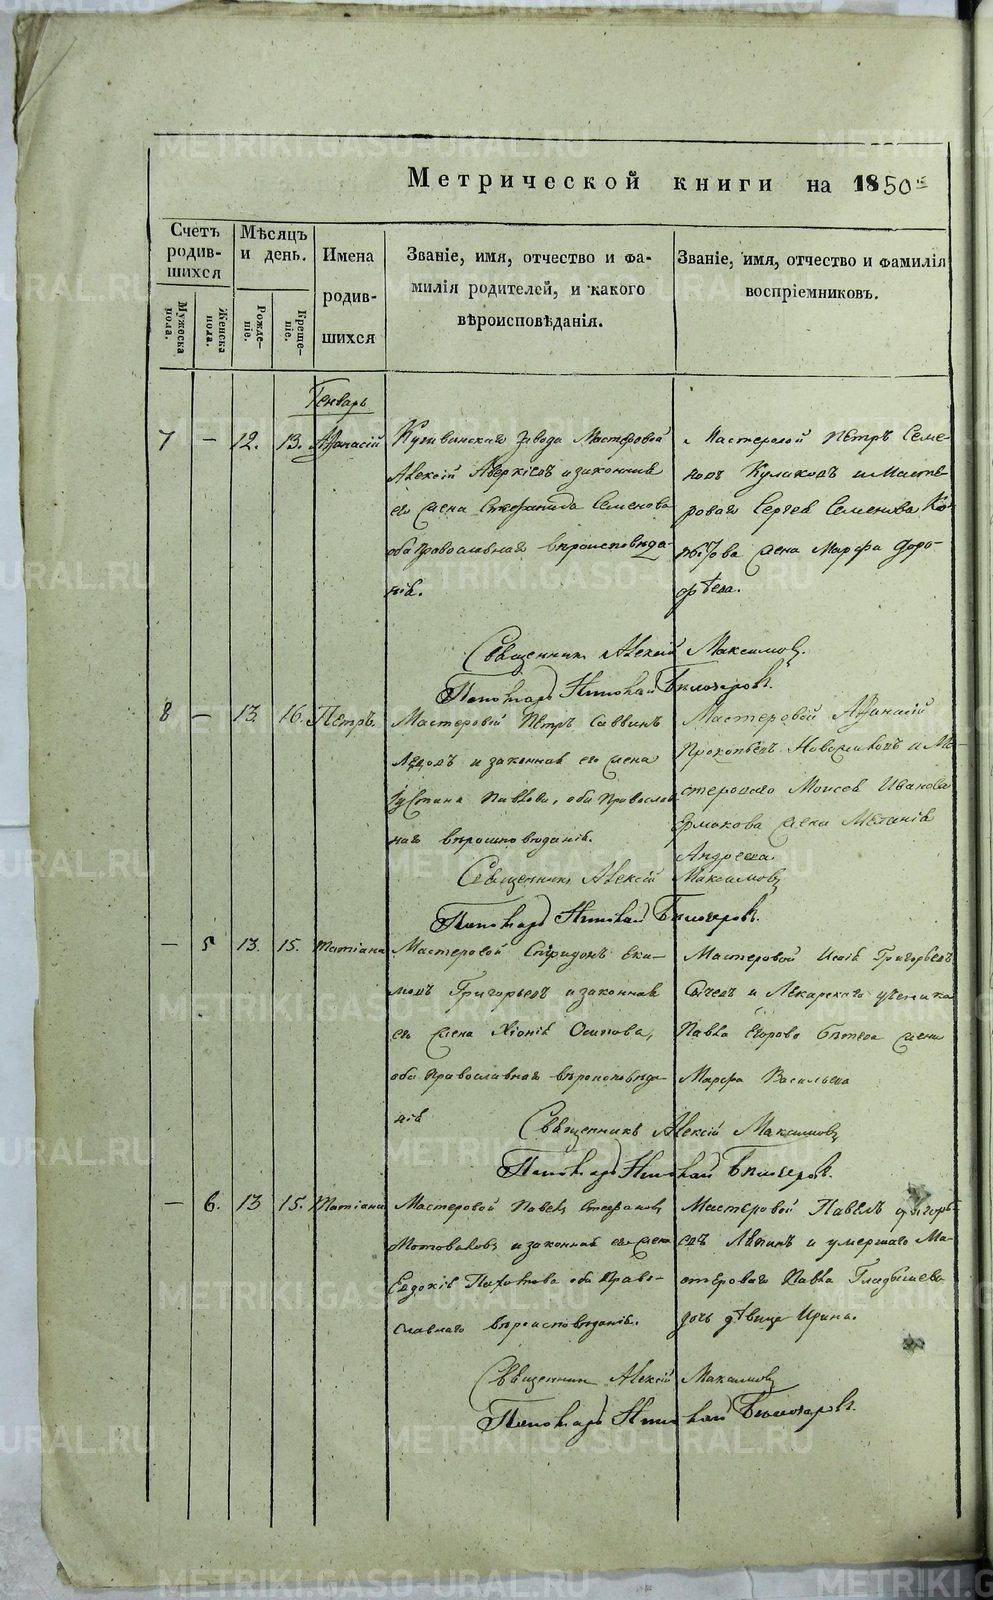 Метрической книги на 1850
Счетъ родившихся
Мѣсяцъ и день.
Имена родившихся
Званіе, имя, отчество и фамилія родителей, и какого вѣроисповѣданія.
Званіе, имя, отчество и фамилія воспріемниковъ.
Мужеска пола.
Женска пола.
Рождение.
Крещеніе.
Генварь
7 — 12. 13. Афанасій
завода Мастеровой
Алексій Аверкіевъ и законная
его жена Стефанида Семенова
оба православнаго вѣроисповѣда-
нія.
Мастеровой Пётръ Семе-
новъ Куликовъ и Масте-
роваго Сергея Семенова
жена Марфа Доро-
фѣева.
Священникъ Алексій Максимовъ.
Пономарь Николай Бѣлозеровъ.
8 — 13. 16. Пётръ
Мастеровой Пётръ Саввинъ
и законная его жена
Іустина Павлова, оба Православ
наго вѣроисповѣданія.
Мастеровой Афанасій
Прокопьевъ и Ма-
стероваго Моисея Иванова
Ермакова жена Меланія
Андреева
Священникъ Алексій Максимовъ
Пономарь Николай Бѣлозеровъ.
— 5 13. 15. Татіана
Мастеровой Спиридонъ Еки-
мовъ Григорьевъ и законная
его жена Хіонія Осипова,
оба православнаго вѣроисповѣда-
нія
Мастеровой Григорьевъ
Сычевъ и Лекарскаго ученика
Павла Егорова жена
Марфа Васильева
Священникъ Алексій Максимовъ
Пономарь Николай Бѣлозеровъ.
— 6. 13 15. Татіана
Мастеровой Павелъ Стефановъ
Мотовиловъ и законная его жена
Евдокія оба Право-
славнаго вѣроисповѣданія.
Мастеровой Павелъ Григорь-
евъ Ляпинъ и умершаго Ма-
стероваго Павла Гладышева
дочь дѣвица Ирина.
Священникъ Алексій Максимовъ
Пономарь Николай Бѣлозеровъ.
METRIKI.GASO-URAL.RU